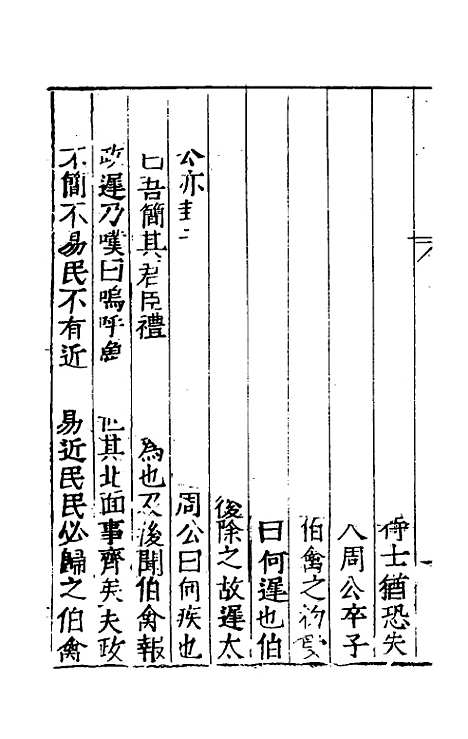 待士猶恐失
人周公卒子
伯禽之初受
曰何遲也伯
後除之故遲太
公亦封 周公曰何疾也
曰吾簡其君臣禮 為也及後聞伯禽報
政遲乃嘆曰嗚呼魯 其北面事齊矣夫政
不簡不易民不有近 易近民民必歸之伯禽